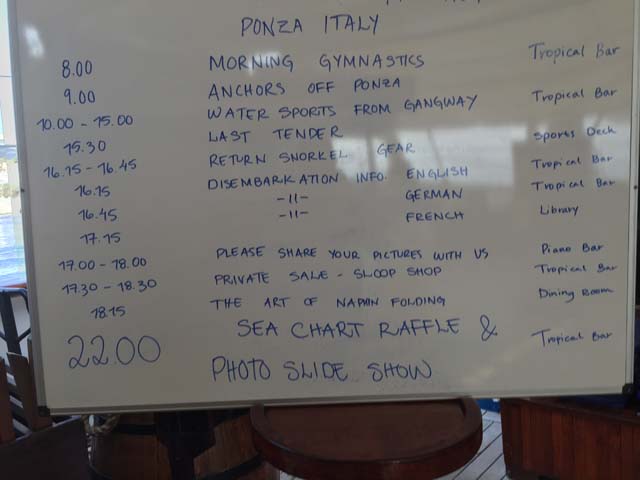 PONZA ITALY
8.00 MORNING GYMNASTICS Tropical Bar
9.00 ANCHORS OFF PONZA
10.00 - 15.00 WATER SPORTS FROM GANGWAY Tropical Bar
15.30 LAST TENDER
16.15 - 16.45 RETURN SNORKEL GEAR Sports Deck
16.15 DISEMBARKATION INFO ENGLISH Tropical Bar
16.45 -11- GERMAN Tropical Bar
17.15 -11- FRENCH Library
17.00 - 18.00 PLEASE SHARE YOUR PICTURES WITH US Piano Bar
17.30 - 18.30 PRIVATE SALE - SLOOP SHOP Tropical Bar
18.15 THE ART OF NAPKIN FOLDING Dining Room
22.00 SEA CHART RAFFLE & Tropical Bar
PHOTO SLIDE SHOW